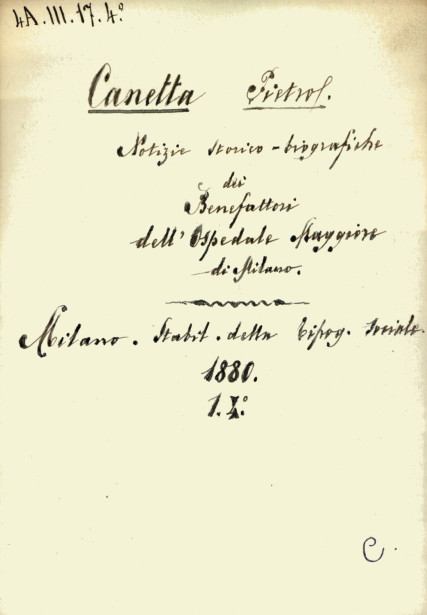 4A.III.17.4º
Canetta Pietro.
Notizie storico-biografiche
dei
Benefattori
dell'Ospedale Maggiore
di Milano.
Milano. Stabil. della Tipog. Sociale.
1880.
1.
C.